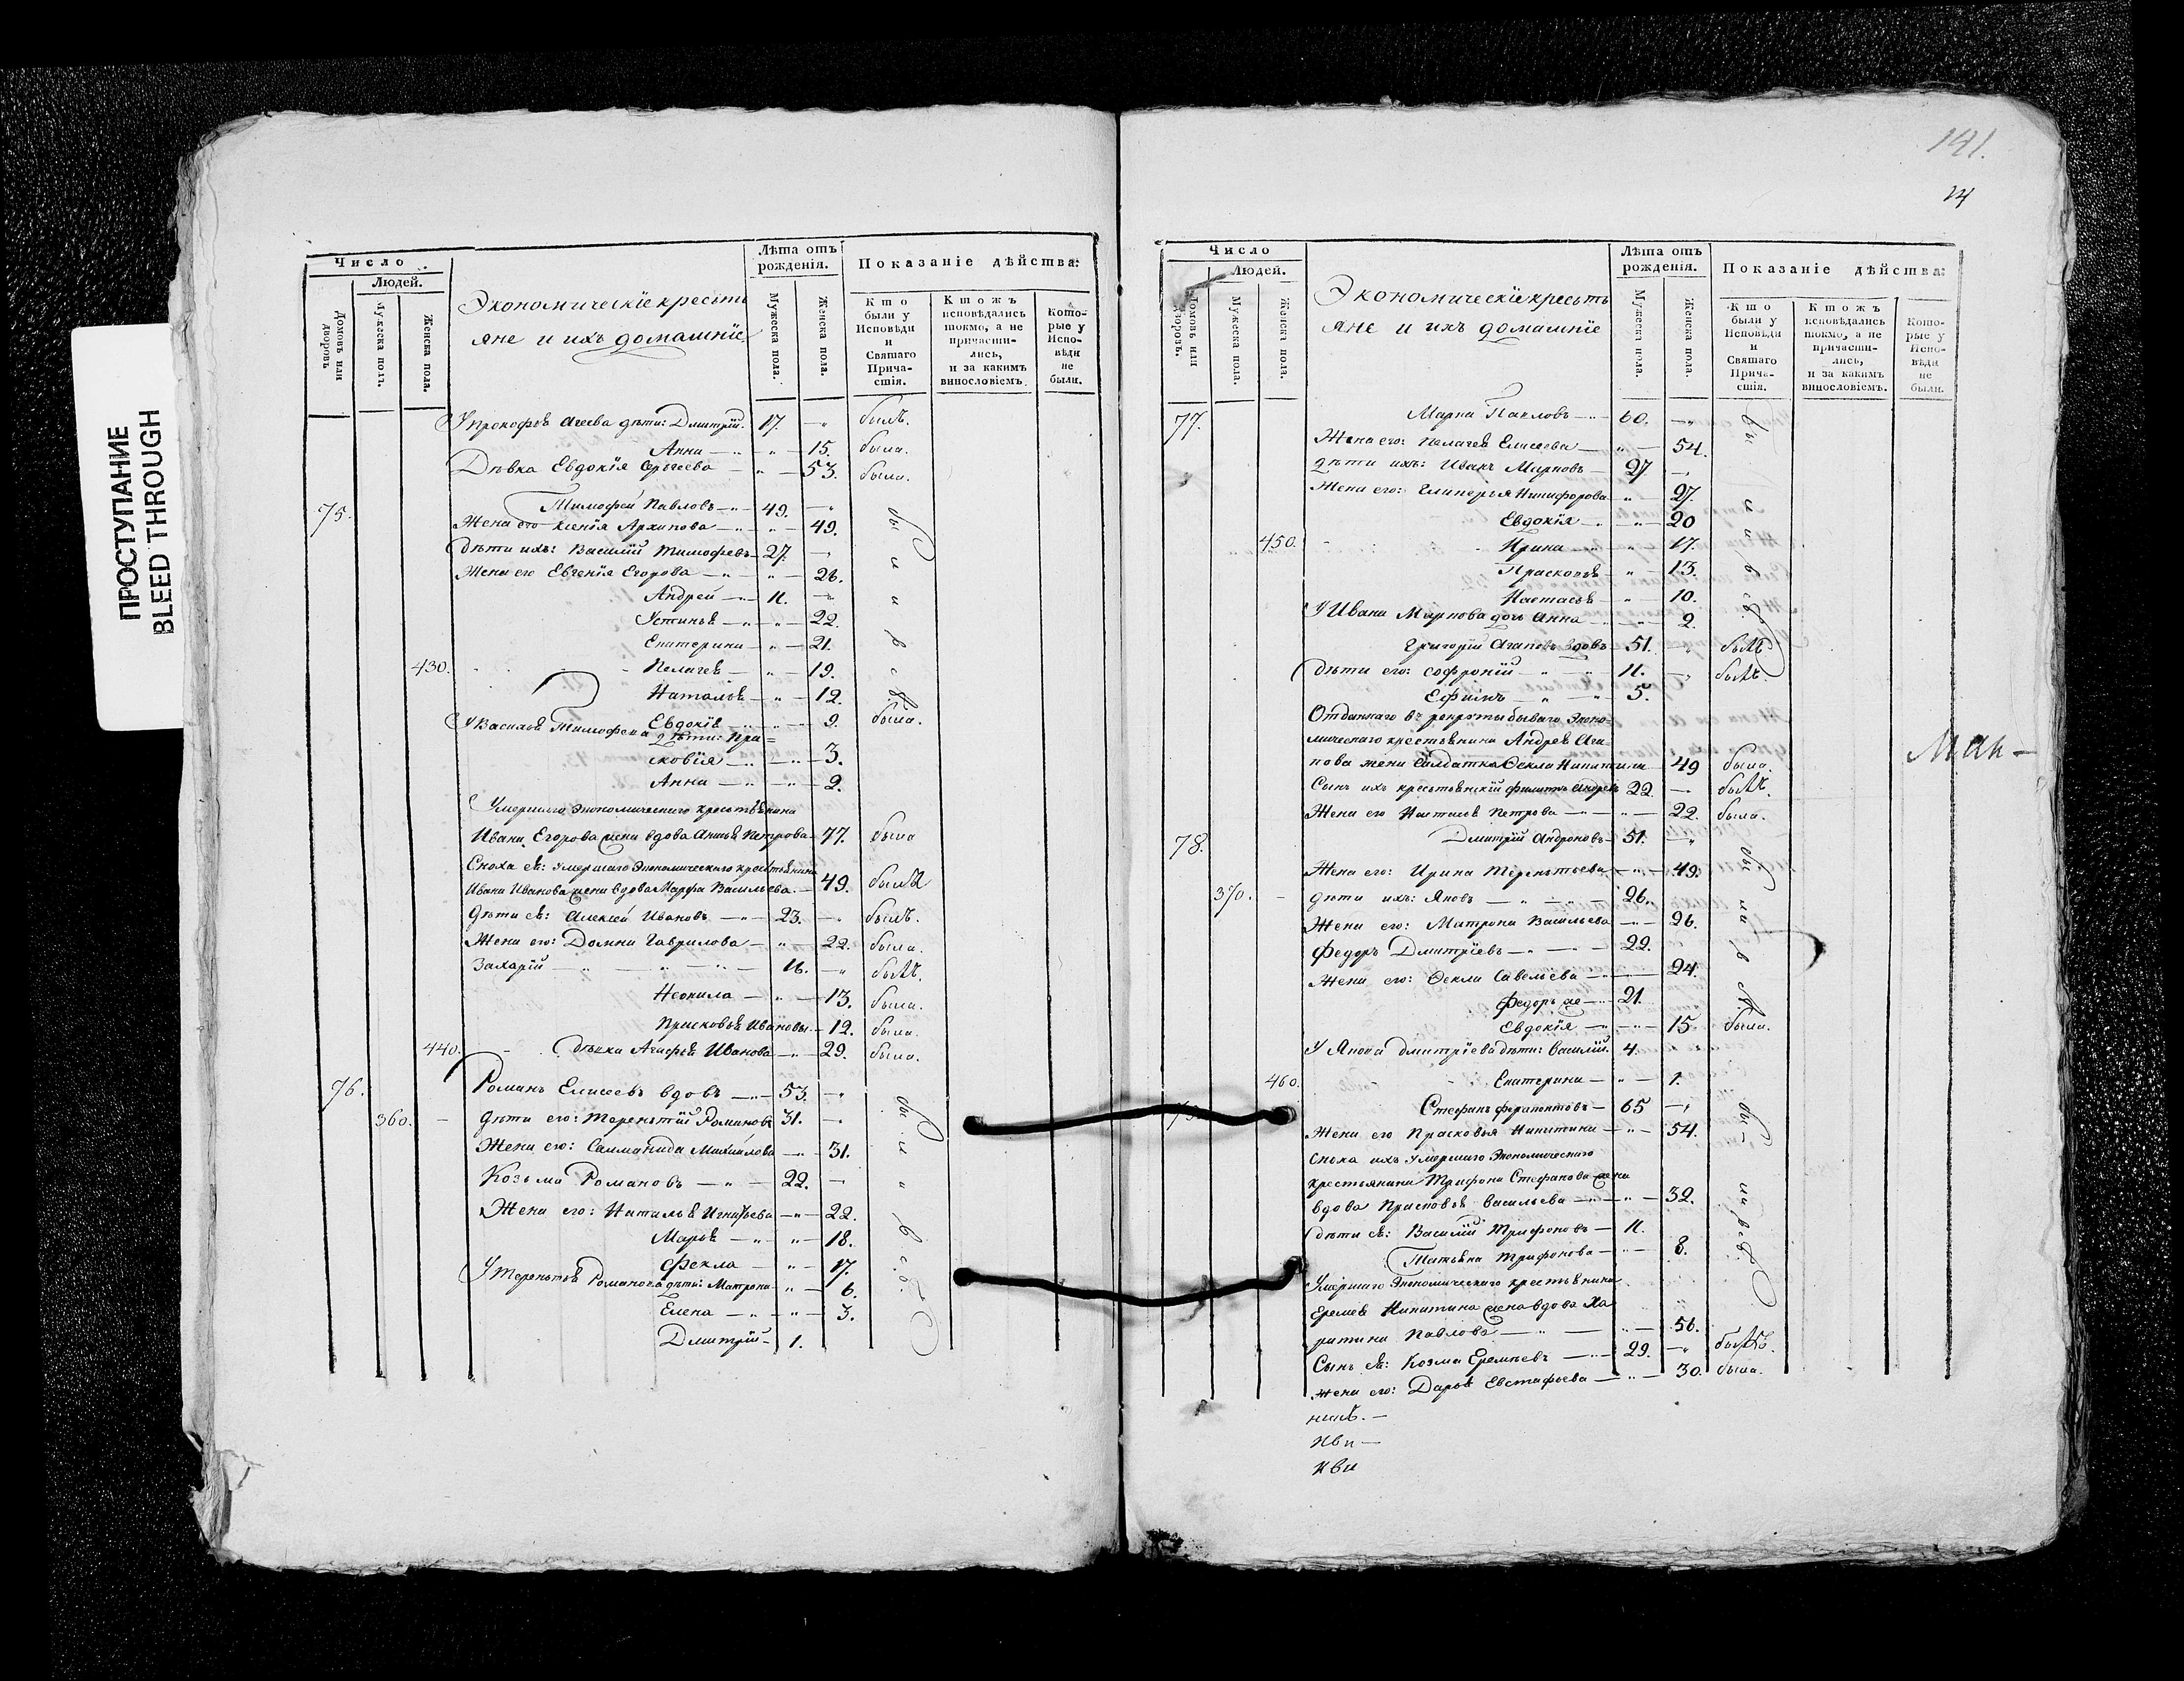 ПРОСТУПАНИЕ
BLEED THROUGH
Число
Людей.
Домовъ или дворовъ
Мужеска пола.
Женска пола.
Экономическїе крестья
яне и ихъ домашнїе
Лѣта отъ рожденїя.
Мужеска пола.
Женска пола.
Показанїе дѣйства:
Кто были у Исповѣди и Святаго Причастїя.
Ктожъ исповѣдались токмо, а не причастились, и за какимъ винословїемъ.
Которые у Исповѣди не были.
У прокофья Агеева дѣти: Дмитрїй. 17. былъ.
Анна 15. была.
Дѣвка Евдокїя Сергеева 53. была.
75. Тимофей Павловъ 49.
Жена его Ксенїя Архипова 49.
дѣти ихъ: Василїй Тимофевъ 27.
Жена его Евгенїя Егорова 26.
Андрей 11.
Устинья 22.
Екатерина 21.
430. Пелагея 19.
Наталья 12.
Евдокїя 9. была.
У Василья Тимофеева дѣти: Пра=
сковїя 3.
Анна 2.
Умершаго экономическаго крестьянина
Ивана Егорова жена вдова Анисья Петрова 77. была
Сноха ея: умершаго экономическаго крестьянина
Ивана Иванова жена вдова Марфа Васильева 49. была
Дѣти ея: Алексей Ивановъ 23. былъ.
Жена его: Домна Гаврилова 22. была.
Захарїй 16. былъ.
Неонила 13. была.
Прасковья Ивановы 12. была.
440. дѣвка Агафья Иванова 29. была.
76. Романъ Елисеевъ вдовъ 53.
360. Дѣти его: Терентїй Романовъ 31.
Жена его: Саламанида Михайлова 31.
Козьма Романовъ 22.
Жена его: Наталья Игнатьева 22.
Марья 18.
Фекла 17.
У Терентья Романова дѣти: Матрона 6.
Елена 3.
Дмитрїй 1.
141.
14
Число
Людей.
Домовъ или дворовъ.
Мужеска пола.
Женска пола.
Экономическїе крестья
яне и ихъ домашнїе
Лѣта отъ рожденїя.
Мужеска пола.
Женска пола.
Показанїе дѣйства:
Кто были у Исповѣди и Святаго Причастїя.
Ктожъ исповѣдались токмо, а не причастились, и за какимъ винословїемъ.
Которые у Исповѣди не были.
77. Марка Павловъ 60.
Жена его: Пелагея Елисеева 54.
дѣти ихъ: Иванъ Марковъ 27
Жена его: Гликерья Никифорова 27.
Евдокїя 20
450. Ирина 17.
Прасковья 13.
Настасья 10.
У Ивана Маркова дочь Анна 2.
Григорїй Агаповъ вдовъ 51. былъ
дѣти его: Софронїй 11. былъ.
Ефимъ 5.
Отданнаго въ рекруты бываго эконо
мическаго крестьянина Андрея Ага
пова жена солдатка Фекла Никитина 49 была.
Сынъ ихъ крестьянскїй Филиппъ Андреевъ 22. былъ.
Жена его Наталья Петрова 22. была.
78. Дмитрїй Андроновъ 51.
Жена его: Ирина Терентьева 49.
370. дѣти ихъ: Яковъ 26.
Жена его: Матрона Васильева 26.
Федоръ Дмитрїевъ 22.
Жена его: Фекла Савельева 24.
Федоръ же 21.
Евдокїя 15 была.
У Якова Дмитрїева дѣти: Василїй 4.
460. Екатерина 1.
Стефанъ Ферапонтовъ 65
Жена его Прасковья Никитина 54.
Сноха ихъ умершаго экономическаго
крестьянина Трифона Стефанова жена
вдова Прасковья Васильева 32.
дѣти ея: Василїй Трифоновъ 11.
Татьяна Трифонова 8.
Умершаго экономическаго крестьянина
Еремея Никитина жена вдова Ха
ритина Павлова 56.
Сынъ ея: Козма Еремѣевъ 29. былъ.
Жена его: Дарья Евстафьева 30. была.